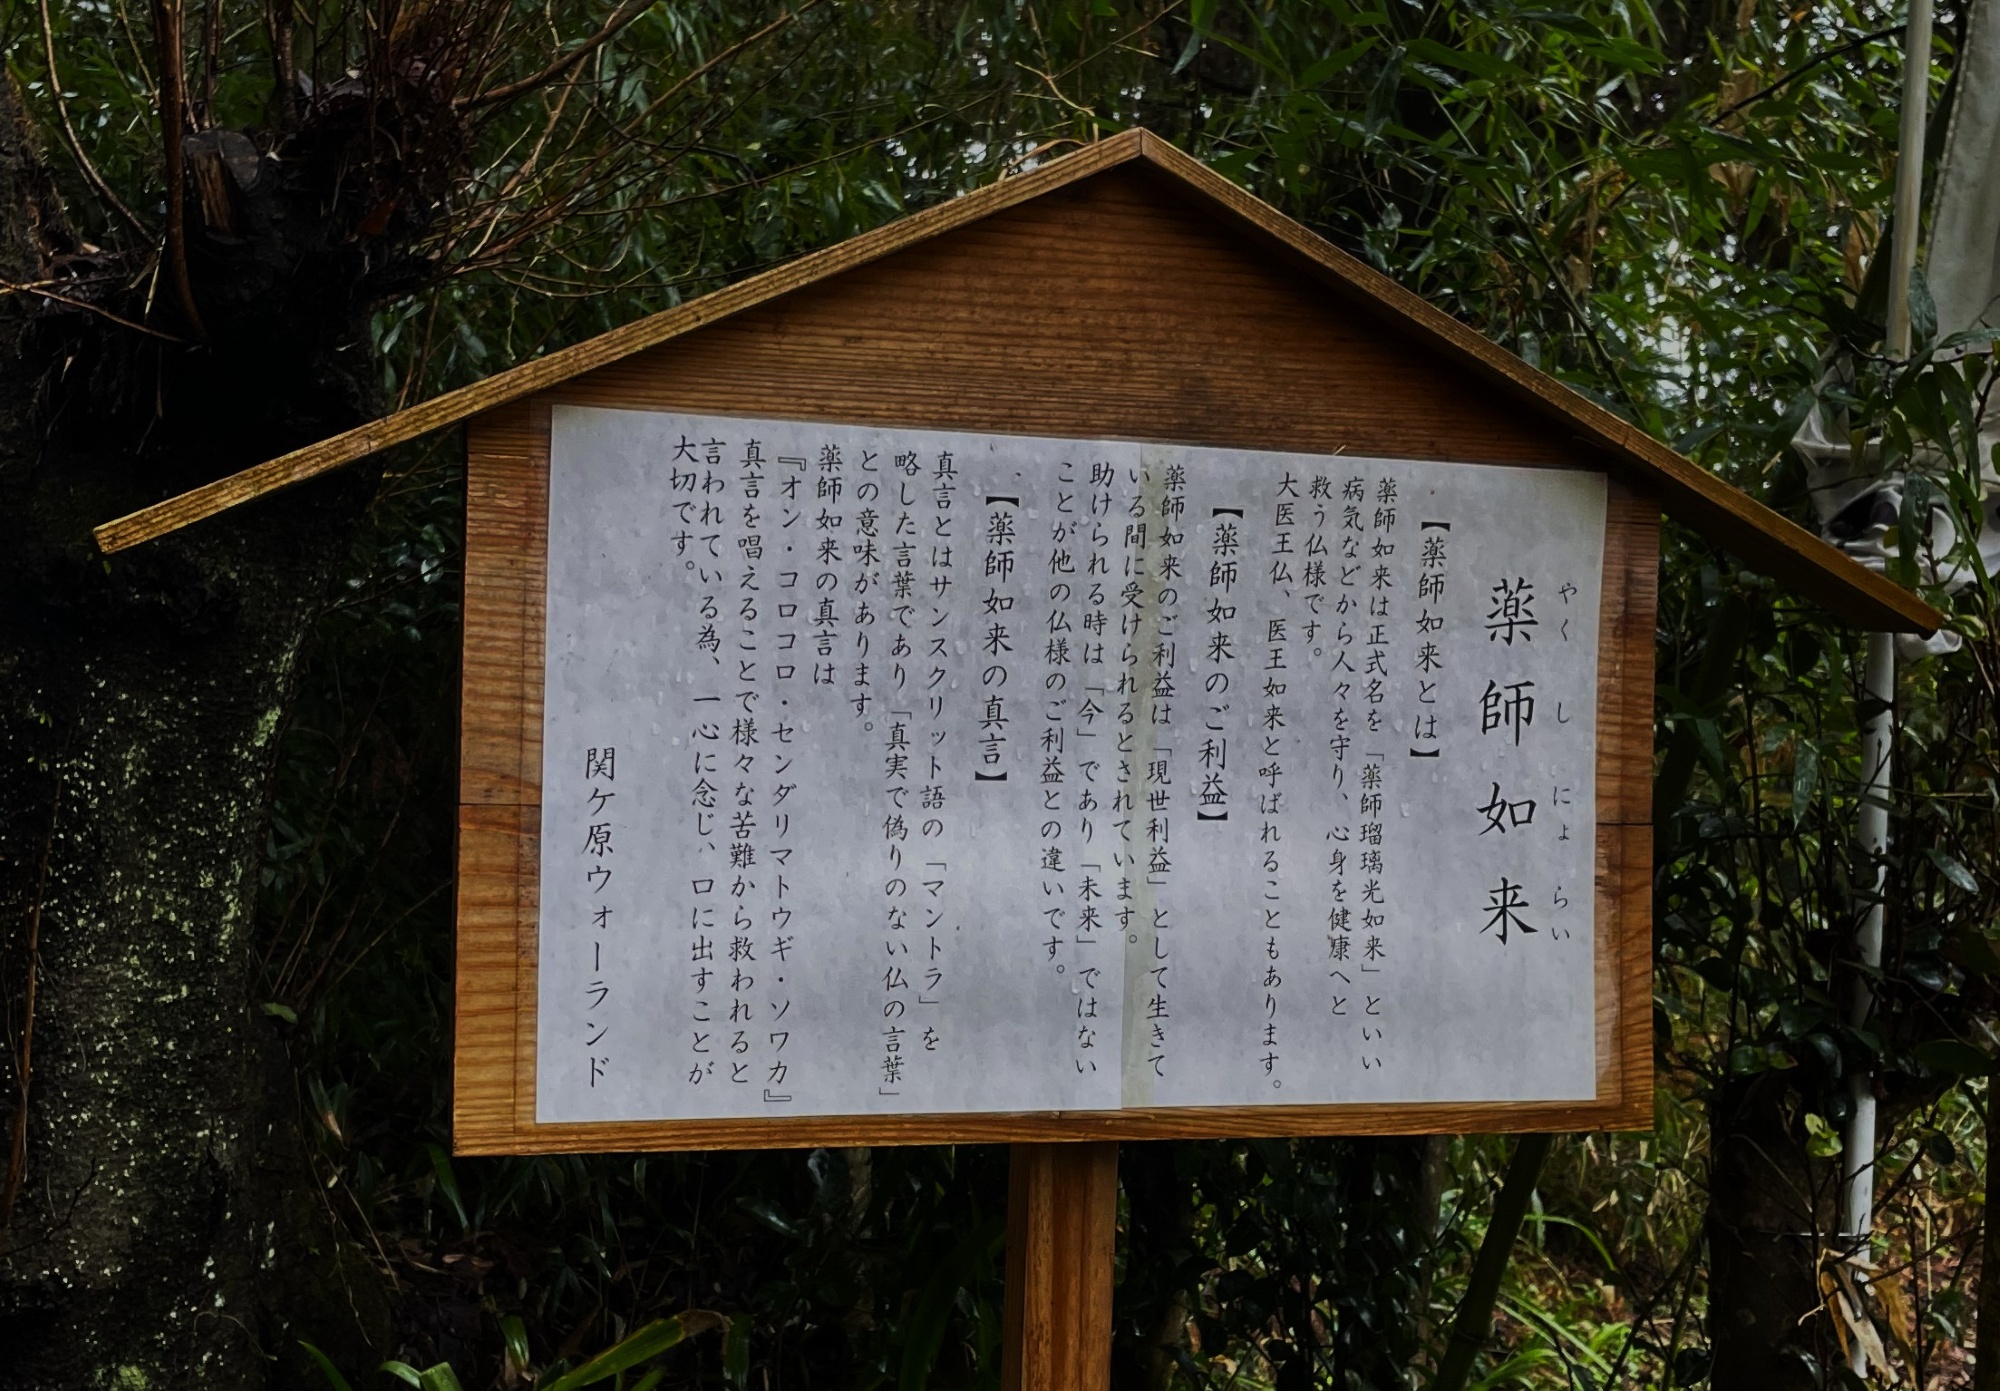 薬師如来
やくしにょらい
【薬師如来とは】
薬師如来は正式名を「薬師瑠璃光如来」といい
病気などから人々を守り、心身を健康へと
救う仏様です。
大医王仏、医王如来と呼ばれることもあります。
【薬師如来のご利益】
薬師如来のご利益は「現世利益」として生きて
いる間に受けられるとされています。
助けられる時は「今」であり「未来」ではない
ことが他の仏様のご利益との違いです。
【薬師如来の真言】
真言とはサンスクリット語の「マントラ」を
略した言葉であり「真実で偽りのない仏の言葉」
との意味があります。
薬師如来の真言は
『オン・コロコロ・センダリマトウギ・ソワカ』
真言を唱えることで様々な苦難から救われると
言われている為、一心に念じ、口に出すことが
大切です。
関ケ原ウォーランド